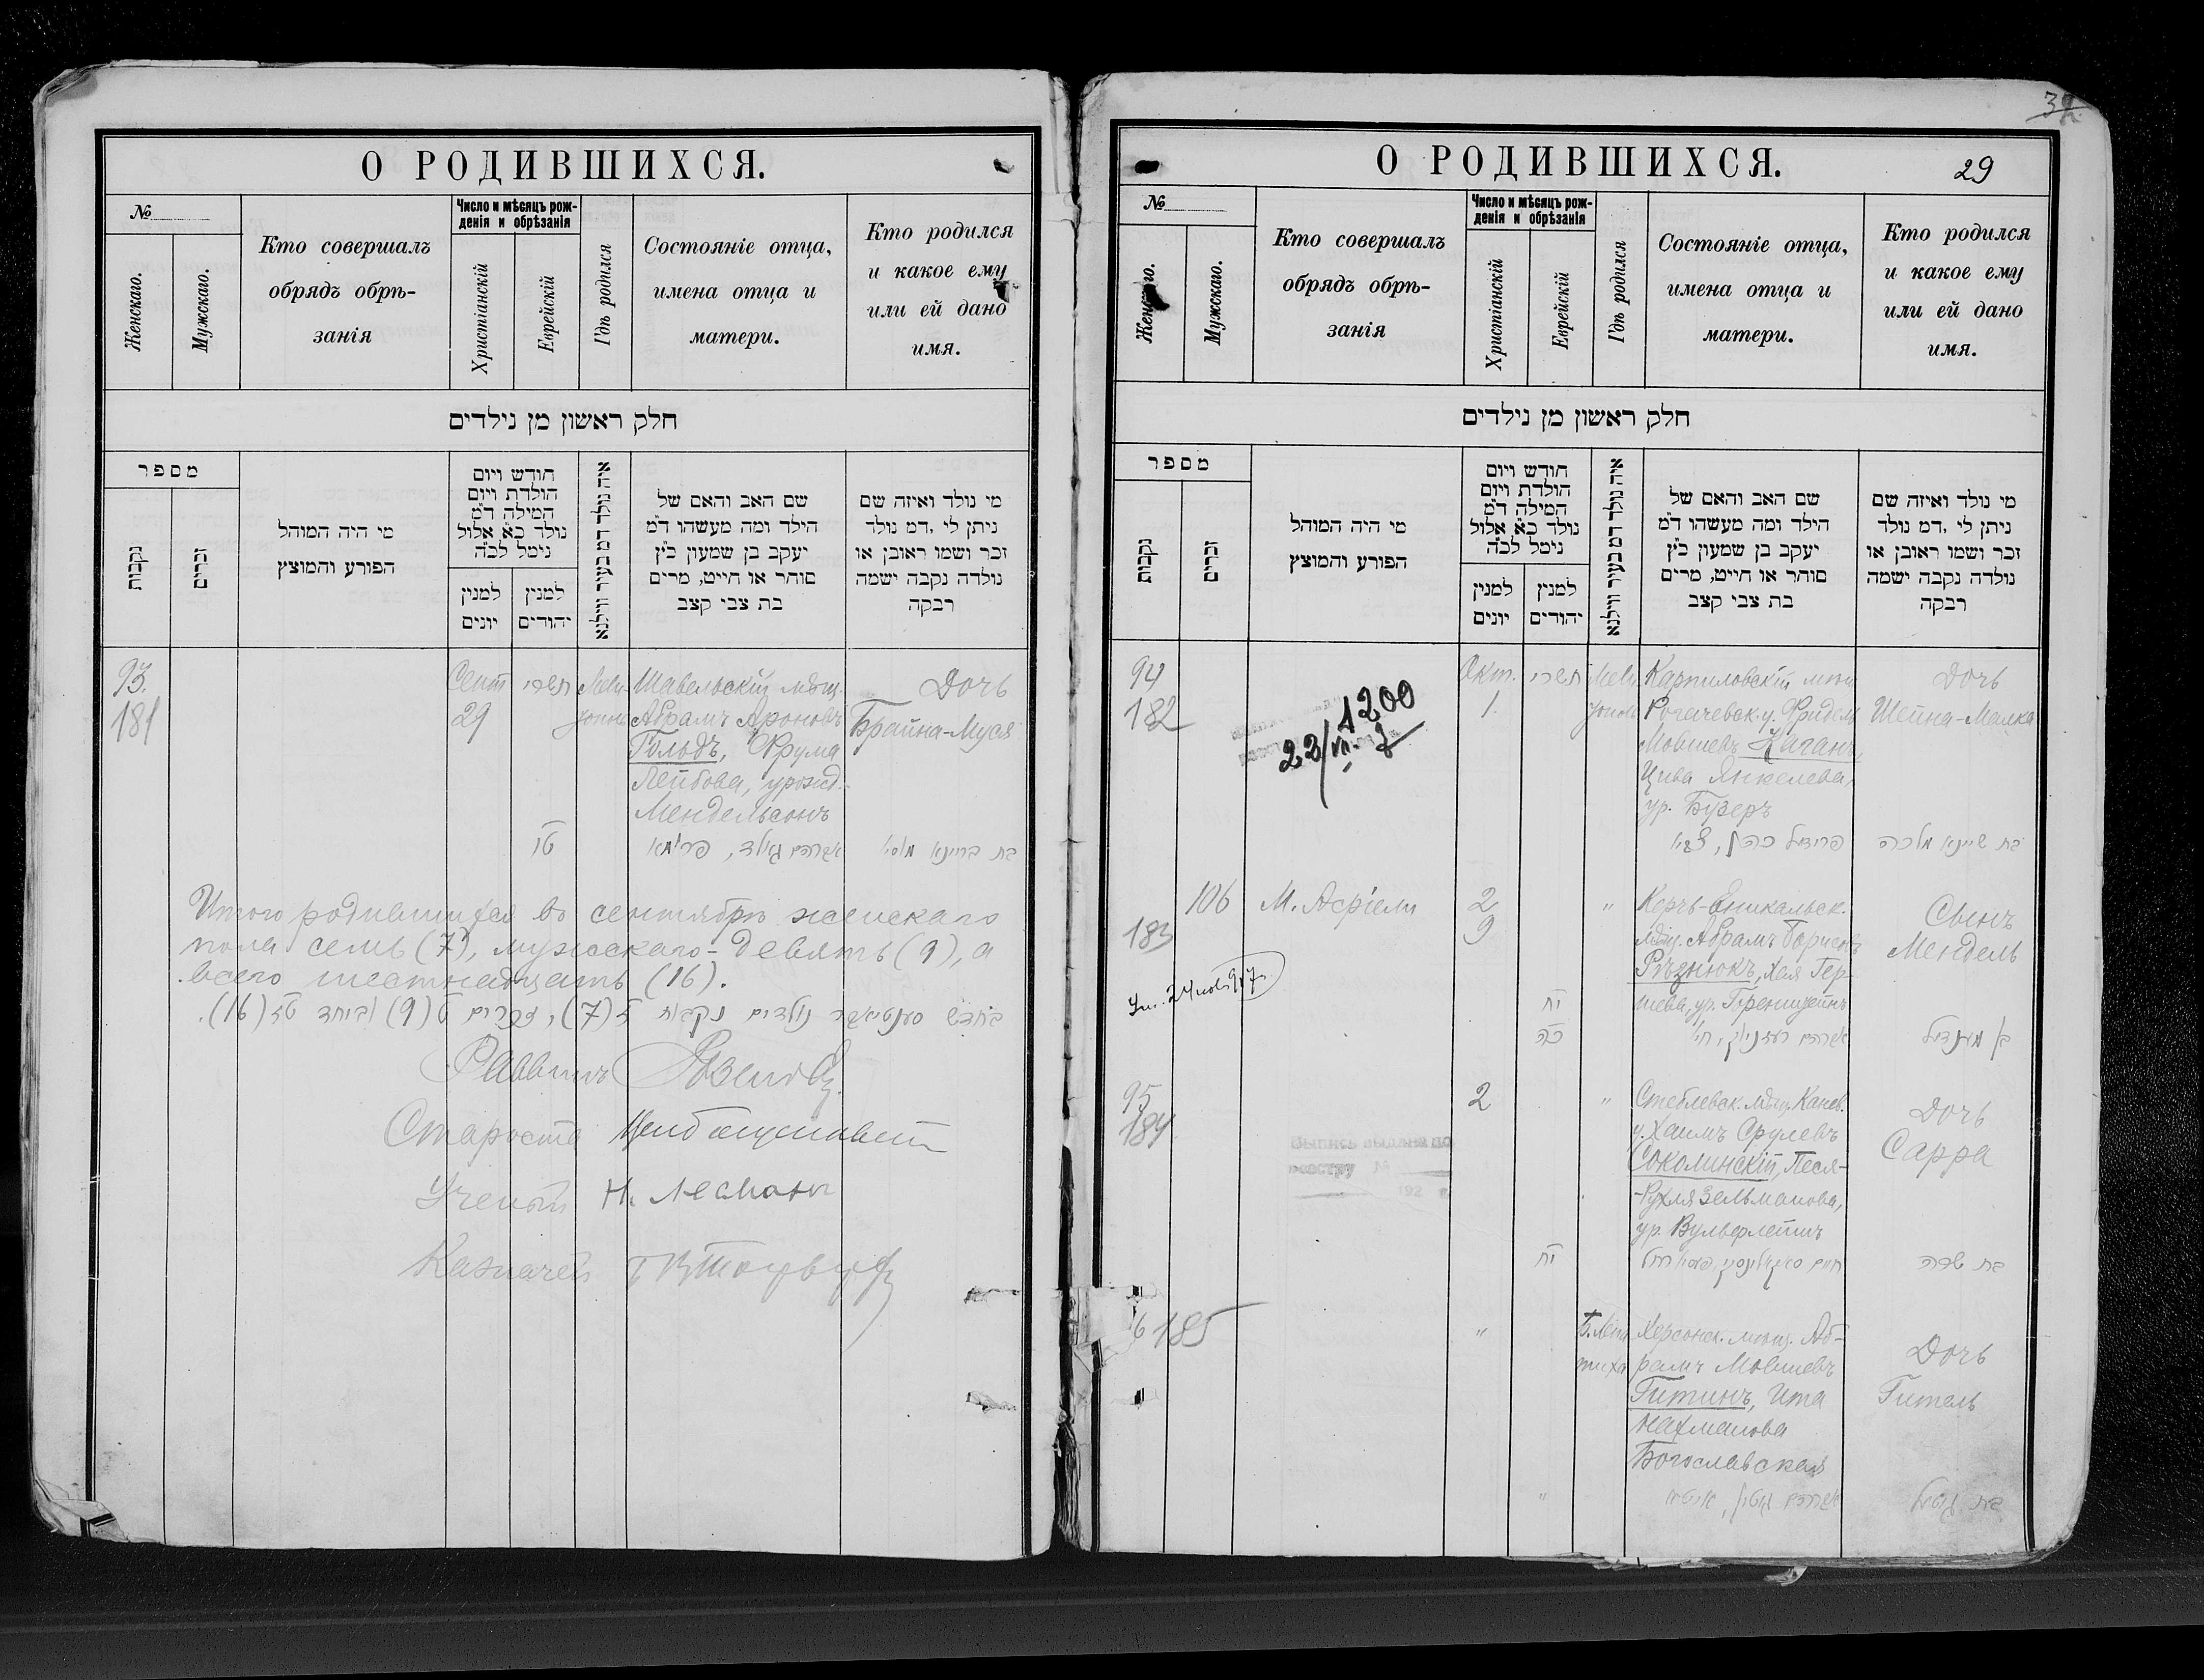 О РОДИВШИХСЯ.
№
Женскаго.
Мужскаго.
Кто совершалъ
обрядъ обрѣ-
занія
Число и мѣсяцъ рож-
денія и обрѣзанія
Христіанскій
Еврейскій
Гдѣ родился
Состояніе отца,
имена отца и
матери.
Кто родился
и какое ему
или ей дано
имя.
חלק ראשון מן נילדים
מספר
נקבות
זכרים
מי היה המוהל
הפורע והמוצץ
חודש ויום
הולדת ויום
המילה ד״מ
נולד כ״א אלול
נימל לכ״ה
למנין
יונים
למנין
יהודים
איה נולד דמ בעיר ווילנא
שם האב והאם של
הילד ומה מעשהו ד״מ
יעקב בן שמעון כ״ץ
סוחר או חייט, מרים
בת צבי קצב
מי נולד ואיזה שם
ניתן לי ,דמ נולד
זכר ושמו ראובן או
נולדה נקבה ישמה
רבקה
93.
181
Сент
29
תשרי
טו
Мели-
тополь
Шавельскій мѣщ.
Абрамъ Ароновъ
Гольдъ, Фрума
Лейбова, урожд.
Мендельсонъ
אברהם גאלד, פרומא
Дочь
Брайна-Муся
בת בריינא מוסי
Итого родившихся въ сентябрѣ женскаго
пола семь (7), мужскаго - девять (9), а
всего шестнадцать (16).
בחדש סענטיאבר נולדים נקבות ז (7), זכרים ט (9) וביחד טז (16).
Раввинъ
Староста
Ученый Н. Лесманъ
Казначей
О РОДИВШИХСЯ.
29
№
Женскаго.
Мужскаго.
Кто совершалъ
обрядъ обрѣ-
занія
Число и мѣсяцъ рож-
денія и обрѣзанія
Христіанскій
Еврейскій
Гдѣ родился
Состояніе отца,
имена отца и
матери.
Кто родился
и какое ему
или ей дано
имя.
חלק ראשון מן נילדים
מספר
נקבות
זכרים
מי היה המוהל
הפורע והמוצץ
חודש ויום
הולדת ויום
המילה ד״מ
נולד כ״א אלול
נימל לכ״ה
למנין
יונים
למנין
יהודים
איה נולד דמ בעיר ווילנא
שם האב והאם של
הילד ומה מעשהו ד״מ
יעקב בן שמעון כ״ץ
סוחר או חייט, מרים
בת צבי קצב
מי נולד ואיזה שם
ניתן לי ,דמ נולד
זכר ושמו ראובן או
נולדה נקבה ישמה
רבקה
94
182
1200
Окт.
1.
תשרי
Мели
тополь
Карпиловскій мѣщ
Рогачевск. у. Фридель
Мовшевъ Каганъ,
Цива Янкелева,
ур. Бузеръ
פרידל כהן, צביא
Дочь
Шейна-Малка
בת שיינא מלכה
183
106
М. Асріели
2
9
יח
כה
"
Керчь-Еникальск.
мѣщ. Абрамъ Борисовъ
Рѣзнюкъ, Хая Гер-
шева, ур. Бренштейнъ
אברהם רעזניוק, חיי
Сынъ
Мендель
בן מענדיל
95
184
Выпись выдана по
реестру №
192 г.
2
יח
"
Стеблевск. мѣщ. Канев.
у. Хаимъ Срулевъ
Соколинскій, Песя-
-Рухля Зельманова,
ур. Вульфлейшъ
Дочь
Сарра
בת שרה
6 185
"
"
Херсонск. мѣщ. Аб-
рамъ Мовшевъ
Гитинъ, Ита
Нахманова
Богославская
אברהם גיטין, איטא
Дочь
Гитель
בת גיטיל